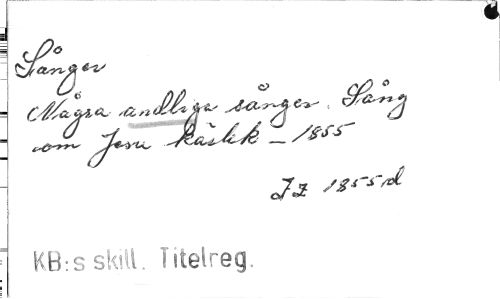 Sånger
Några andliga sånger. Sång
om Jesu kärlek – 1855
Jz 1855d
KB:s skill. Titelreg.